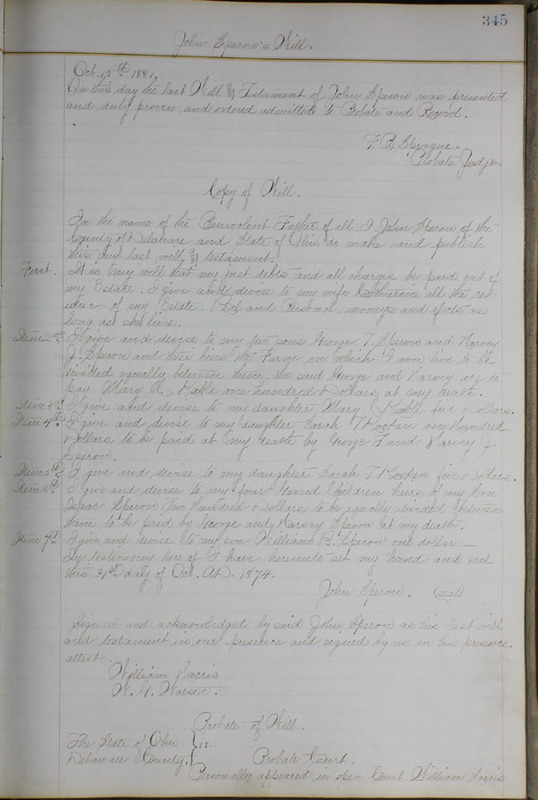 345
John Sperow's Will.
Oct. 15th 1881,
On this day the last Will & Testament of John Sperow was presented
and duly proven and ordered admitted to Probate and Record.
F. B. Sprague.
Probate Judge.
Copy of Will.
In the name of the Benevolent Father of all. I John Sperow of the
County of Delaware and State of Ohio do make and publish
this my last will & testament.
First. It is my will that my just debts and all charges be paid out of
my Estate. I give and devise to my wife Catharine all the res-
idue of my Estate. Real and Personal, moneys and effects as
long as she lives.
Item 2nd. I give and devise to my two sons George T. Sperow and Harvey
J. Sperow and their heirs the Farm on which I now live to be
divided equally between them, the said George and Harvey are to
pay Mary A. one hundred Dollars at my death.
Item 3d. I give and devise to my daughter Mary five Dollars.
Item 4th. I give and devise to my daughter Sarah T Kooken one Hundred
Dollars to be paid at my death by George T and Harvey J.
Sperow.
Item 5th. I give and devise to my daughter Sarah T Kooken five Dollars.
Item 6th. I give and devise to my four Grand Children heirs of my Son
Isaac Sperow Two Hundred Dollars to be equally divided between
them to be paid by George and Harvey Sperow at my death.
Item 7th. I give and devise to my son William B. Sperow one dollar
In testimony here of I have hereunto set my hand and seal
this 31st day of Oct. A.D. 1874.
John Sperow. (seal)
Signed and acknowledged by said John Sperow as his last will
and testament in our presence and signed by us in his presence.
attest.
William Harris
W. G. Watson.
Probate of Will.
The State of Ohio } ss.
Delaware County. } Probate Court.
Personally appeared in open Court William Harris